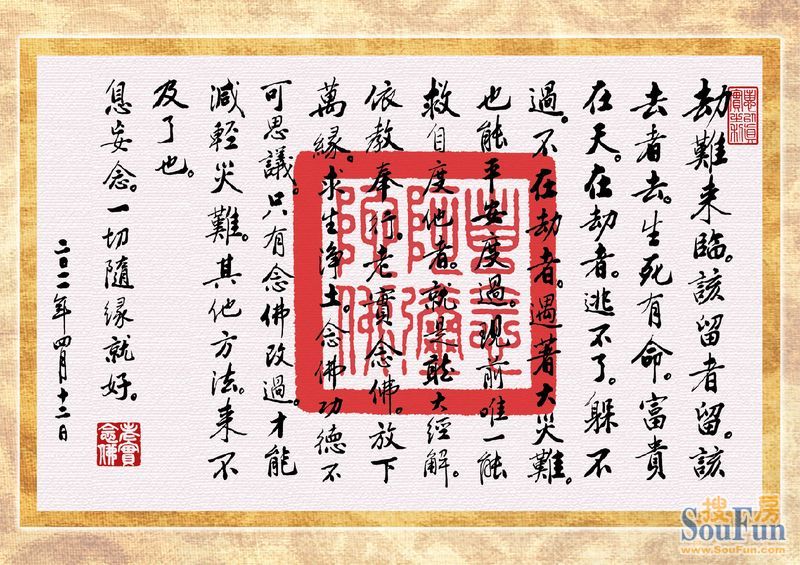 劫難来臨。該留者留。該
去者去。生死有命。富貴
在天。在劫者。逃不了。躲不
過。不在劫者。遇著大災難。
也能平安度過。現前唯一能
救自度他者。就是聽大經解。
依教奉行。老實念佛。放下
萬緣。求生淨土。念佛功德不
可思議。只有念佛改過。才能
減輕災難。其他方法。来不
及了也。
息妄念。一切隨緣就好。
二〇一一年四月十二日
老實
念佛
南無
阿彌
陀佛
搜房
SouFun
www.SouFun.com